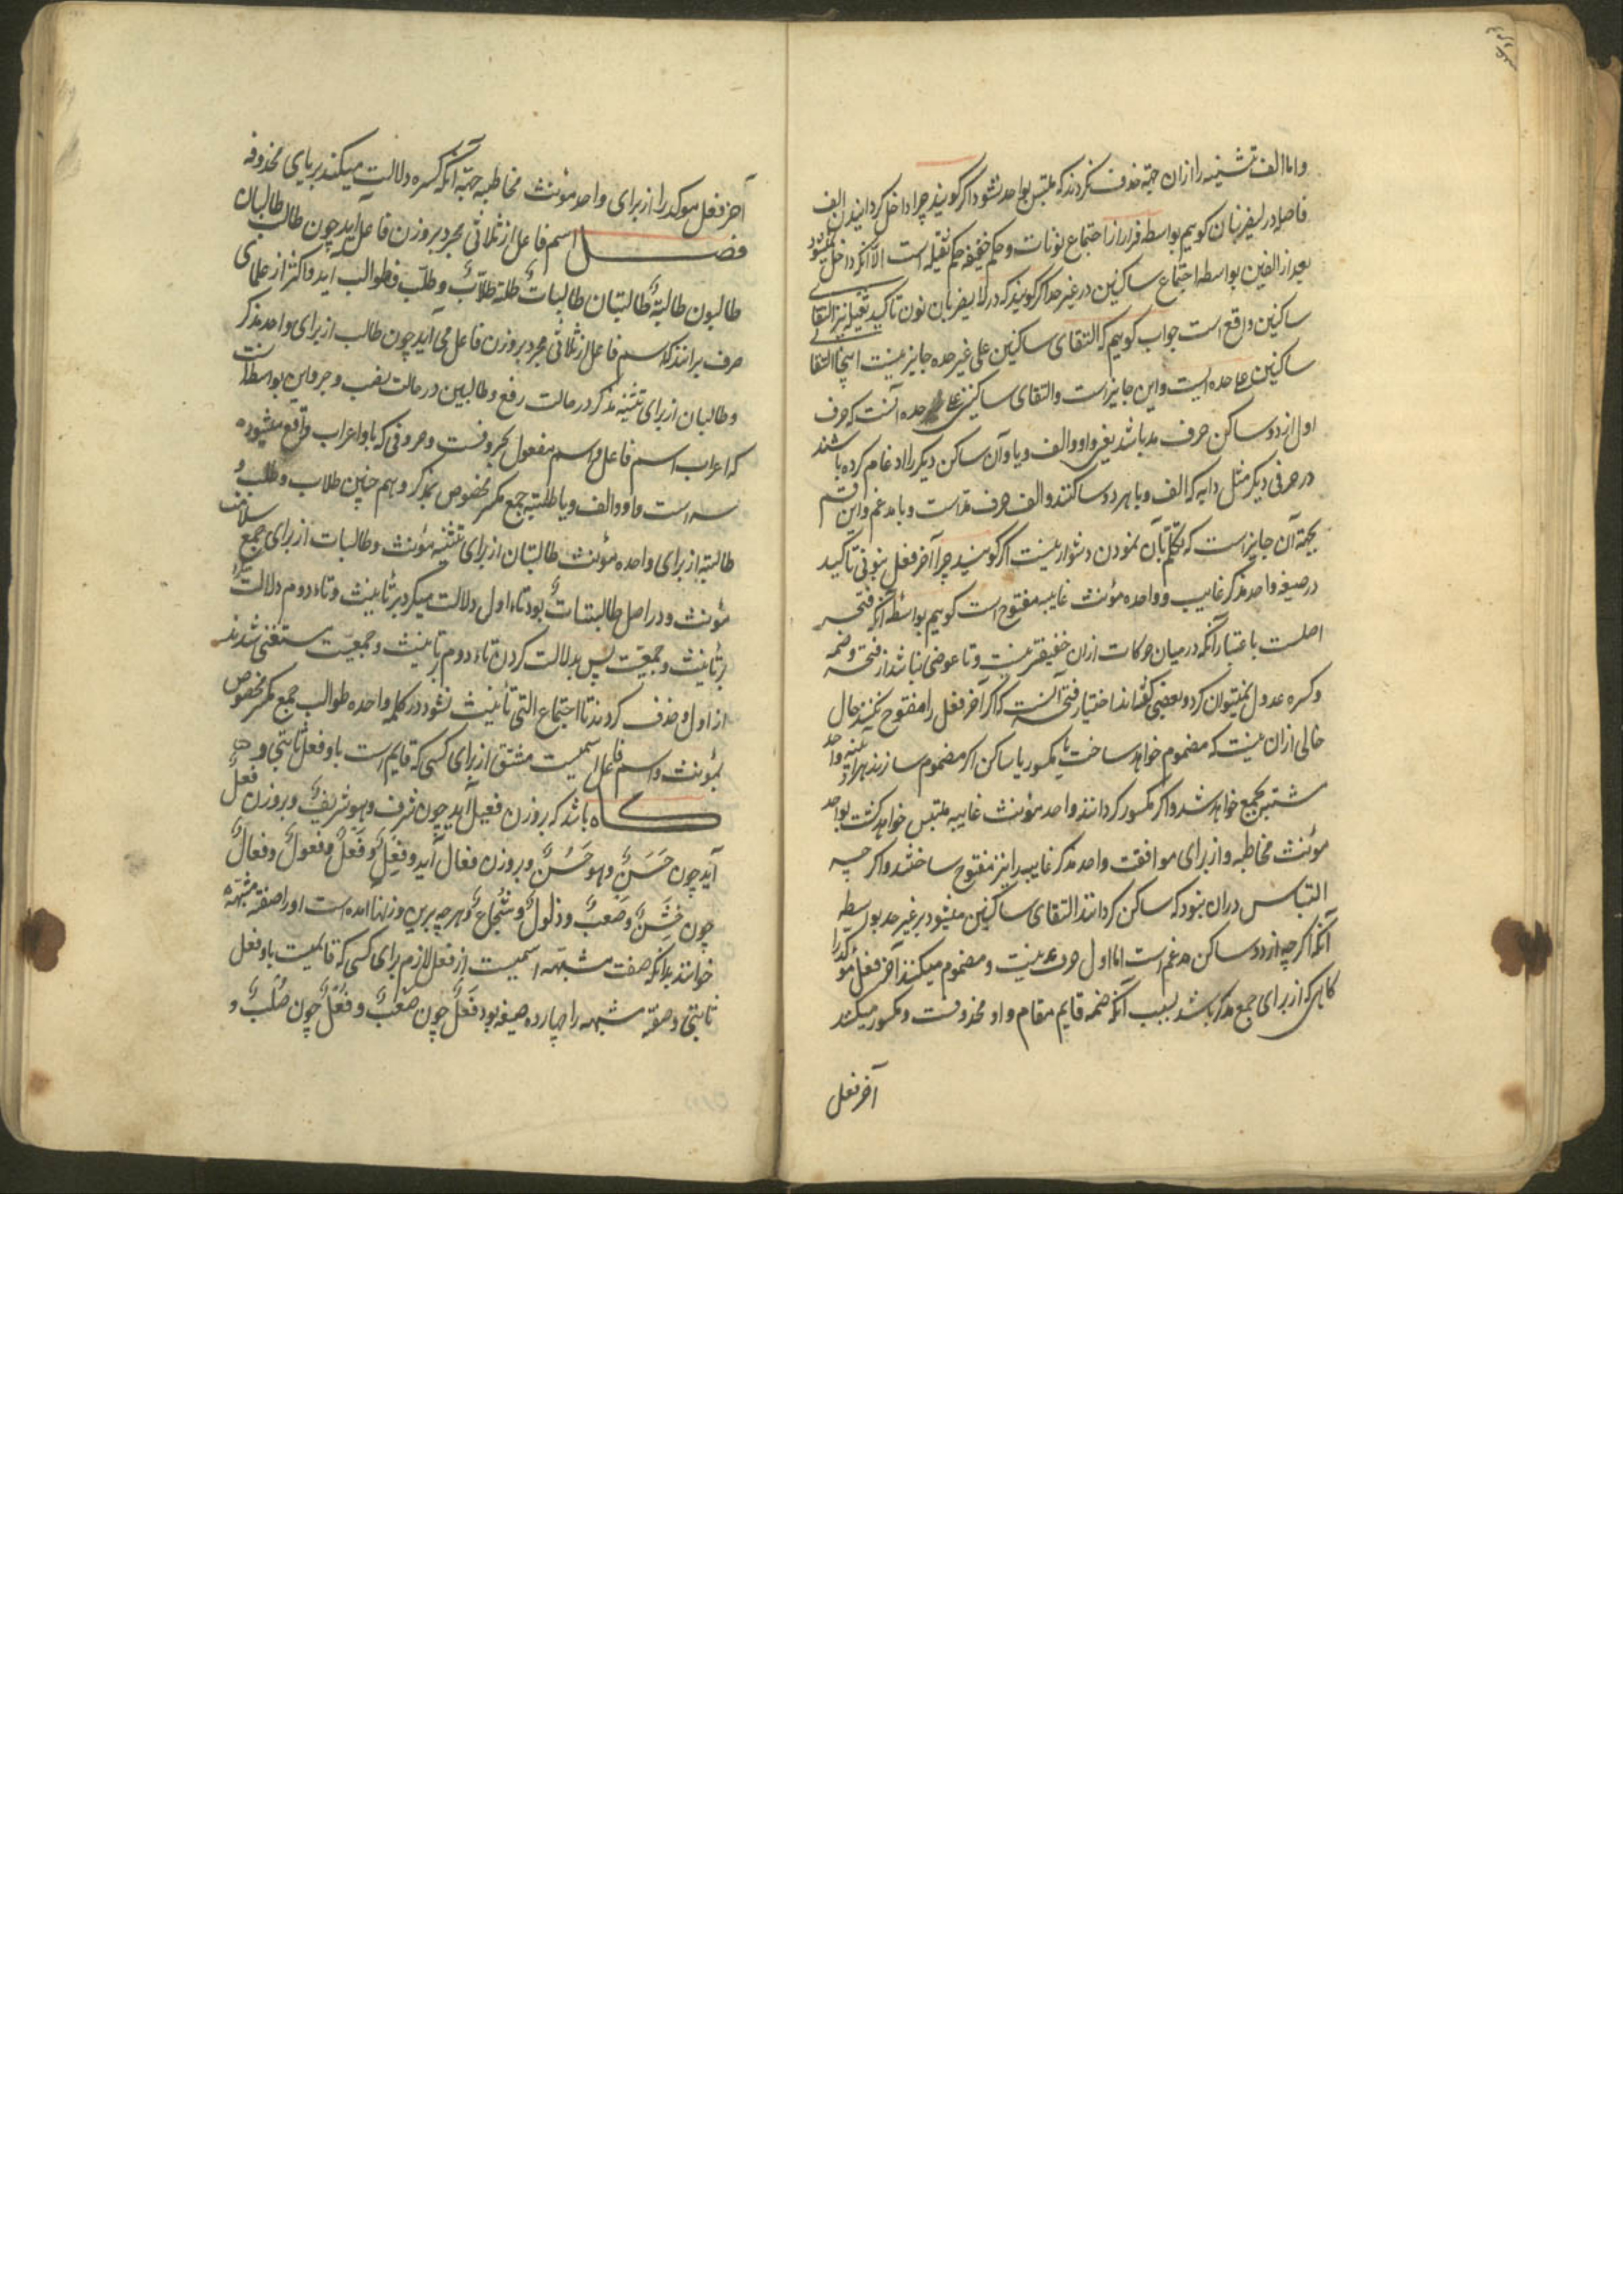 واما الف تثنیه را ازان جهة حذف نکردند که ملتبس بواحد نشود اکر کویند چرا داخل کردانیدن الف
فاصله در لیضربنان کوییم بواسطه فرار از اجتماع نونات و حکم خفیفه حکم ثقیله است الا آنکه داخل نمیشود
بعد از الفین بواسطه اجتماع ساکنین در غیر حد اکر کویند که در لا یضربان نون تاکید ثقیله نیز التقای
ساکنین واقع است جواب کوییم که التقای ساکنین علی غیر حده جایز نیست اینجا التقا
ساکنین علی حده است و این جایز است والتقای ساکنین علی حده آنست که حرف
اول از دو ساکن حرف مد باشد یعنی واو والف و یا و آن ساکن دیکر را ادغام کرده باشند
در حرفی دیکر مثل دابه که الف و با هر دو ساکنند والف حرف مد است و با مدغم و این قسم
بجهة آن جایز است که تکلم بآن نمودن دشوار نیست اکر کویند چرا آخر فعل بنونی تاکید
در صیغه واحد مذکر غایب و واحده مؤنث غایبه مفتوح است کوییم بواسطه آنکه فتحه
اصلست باعتبار آنکه در میان حرکات ازان خفیفتر نیست و تا عوضی نباشد از فتحه وضمه
وکسره عدول نمیتوان کرد و بعضی کفته‌اند اختیار فتحه آنست که اکر آخر فعل را مفتوح نکنند حال
خالی ازان نیست که مضموم خواهد ساخت یا مکسور یا ساکن اکر مضموم سازند هراینه واحد
مشتبه بجمع خواهد شد واکر مکسور کردانند واحد مؤنث غایبه ملتبس خواهد کشت بواحد
مونث مخاطبه و از برای موافقت واحد مذکر غایب را نیز مفتوح ساختند واکر چه
التباس دران نبود که ساکن کردانند التقای ساکنین میشود بر غیر حد بواسطه
آنکه اکرچه از دو ساکن مدغم است اما اول حرف مد نیست و مضموم میکنند آخر فعل مؤکد را
کاهی که از برای جمع مذکر باشد بسبب آنکه ضمه قایم مقام واو محذوفست و مکسور میکنند
آخر فعل
آخر فعل موکد را از برای واحد مؤنث مخاطبه جهة آنکه کسره دلالت میکند بر یای محذوفه
فصل اسم فاعل از ثلاثی مجرد بر وزن فاعل آید چون طالب طالبان
طالبون طالبة طالبتان طالبات طلبة طلاب و طلب و طوالب آید و اکثر از علمای
صرف برانند که اسم فاعل از ثلاثی مجرد بر وزن فاعل می آید چون طالب از برای واحد مذکر
و طالبان از برای تثنیه مذکر در حالت رفع و طالبین در حالت نصب و جر و این بواسطه آنست
که اعراب اسم فاعل و اسم مفعول بحروفست و حروفی که باو اعراب واقع میشود
سه است واو والف و یا طلبة جمع مکسر مخصوص بمذکر و هم چنین طلاب و طلب و
طالبة از برای واحده مؤنث طالبتان از برای تثنیه مؤنث و طالبات از برای جمع سلامت
مؤنث و در اصل طالبتات بود تاء اول دلالت میکرد بر تأنیث و تاء دوم دلالت میکرد
بر تأنیث و جمعیت پس بدلالت کردن تاء دوم بر تأنیث و جمعیت مستغنی شدند
از اول و حذف کردند تا اجتماع التی تأنیث نشود در کلمه واحده طوالب جمع مکسر مخصوص
بمؤنث و اسم فاعل اسمیست مشتق از برای کسی که قایم است باو فعل ثابتی و
کاه باشد که بر وزن فعیل آید چون شرف وهو شریف و بر وزن فعل
آید چون حسن وهو حسن و بر وزن فعال آید و فعل و فعل و فعول و فعال
چون خشن و صعب و ذلول و شجاع و هر چه برین وزنها امده است او را صفة مشبهه
خوانند بدانکه صفت مشبهه اسمیست از فعل لازم برای کسی که قایمست باو فعل
ثابتی و صفة مشبهه را چهارده صیغه بود فعل چون صعب و فعل چون صلب و